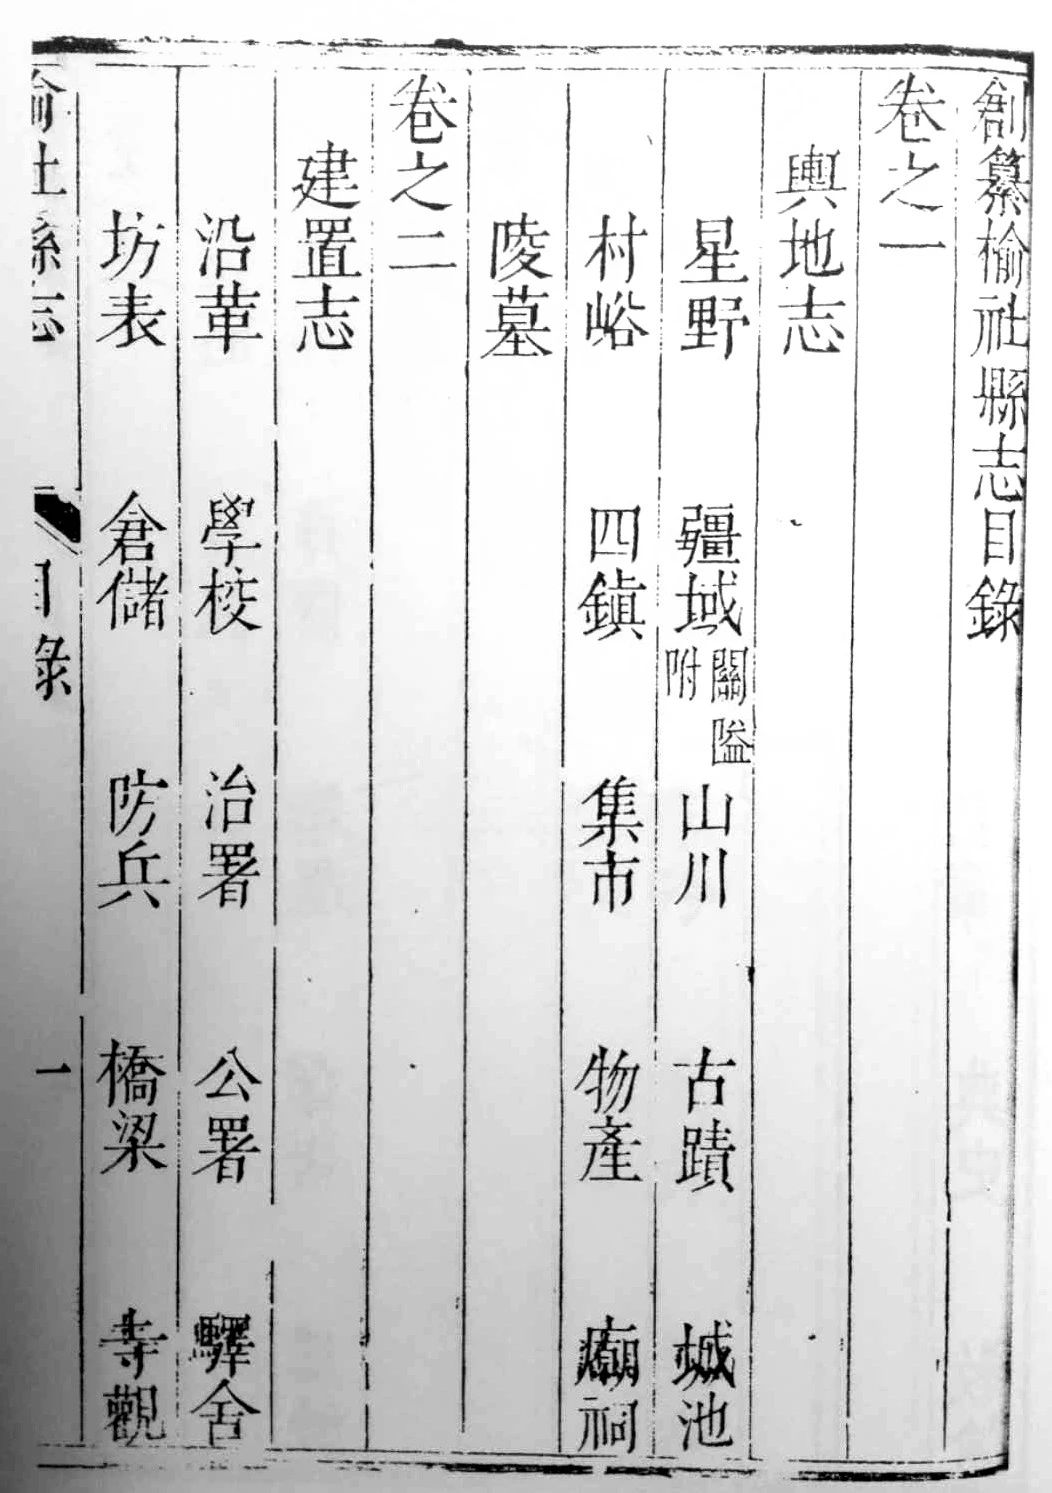 創纂榆社縣志目錄
卷之一
輿地志
星野 疆域 關隘附 山川 古蹟 城池
村峪 四鎮 集市 物產 廟祠
陵墓
卷之二
建置志
沿革 學校 治署 公署 驛舍
坊表 倉儲 防兵 橋梁 寺觀
榆社縣志 目錄 一